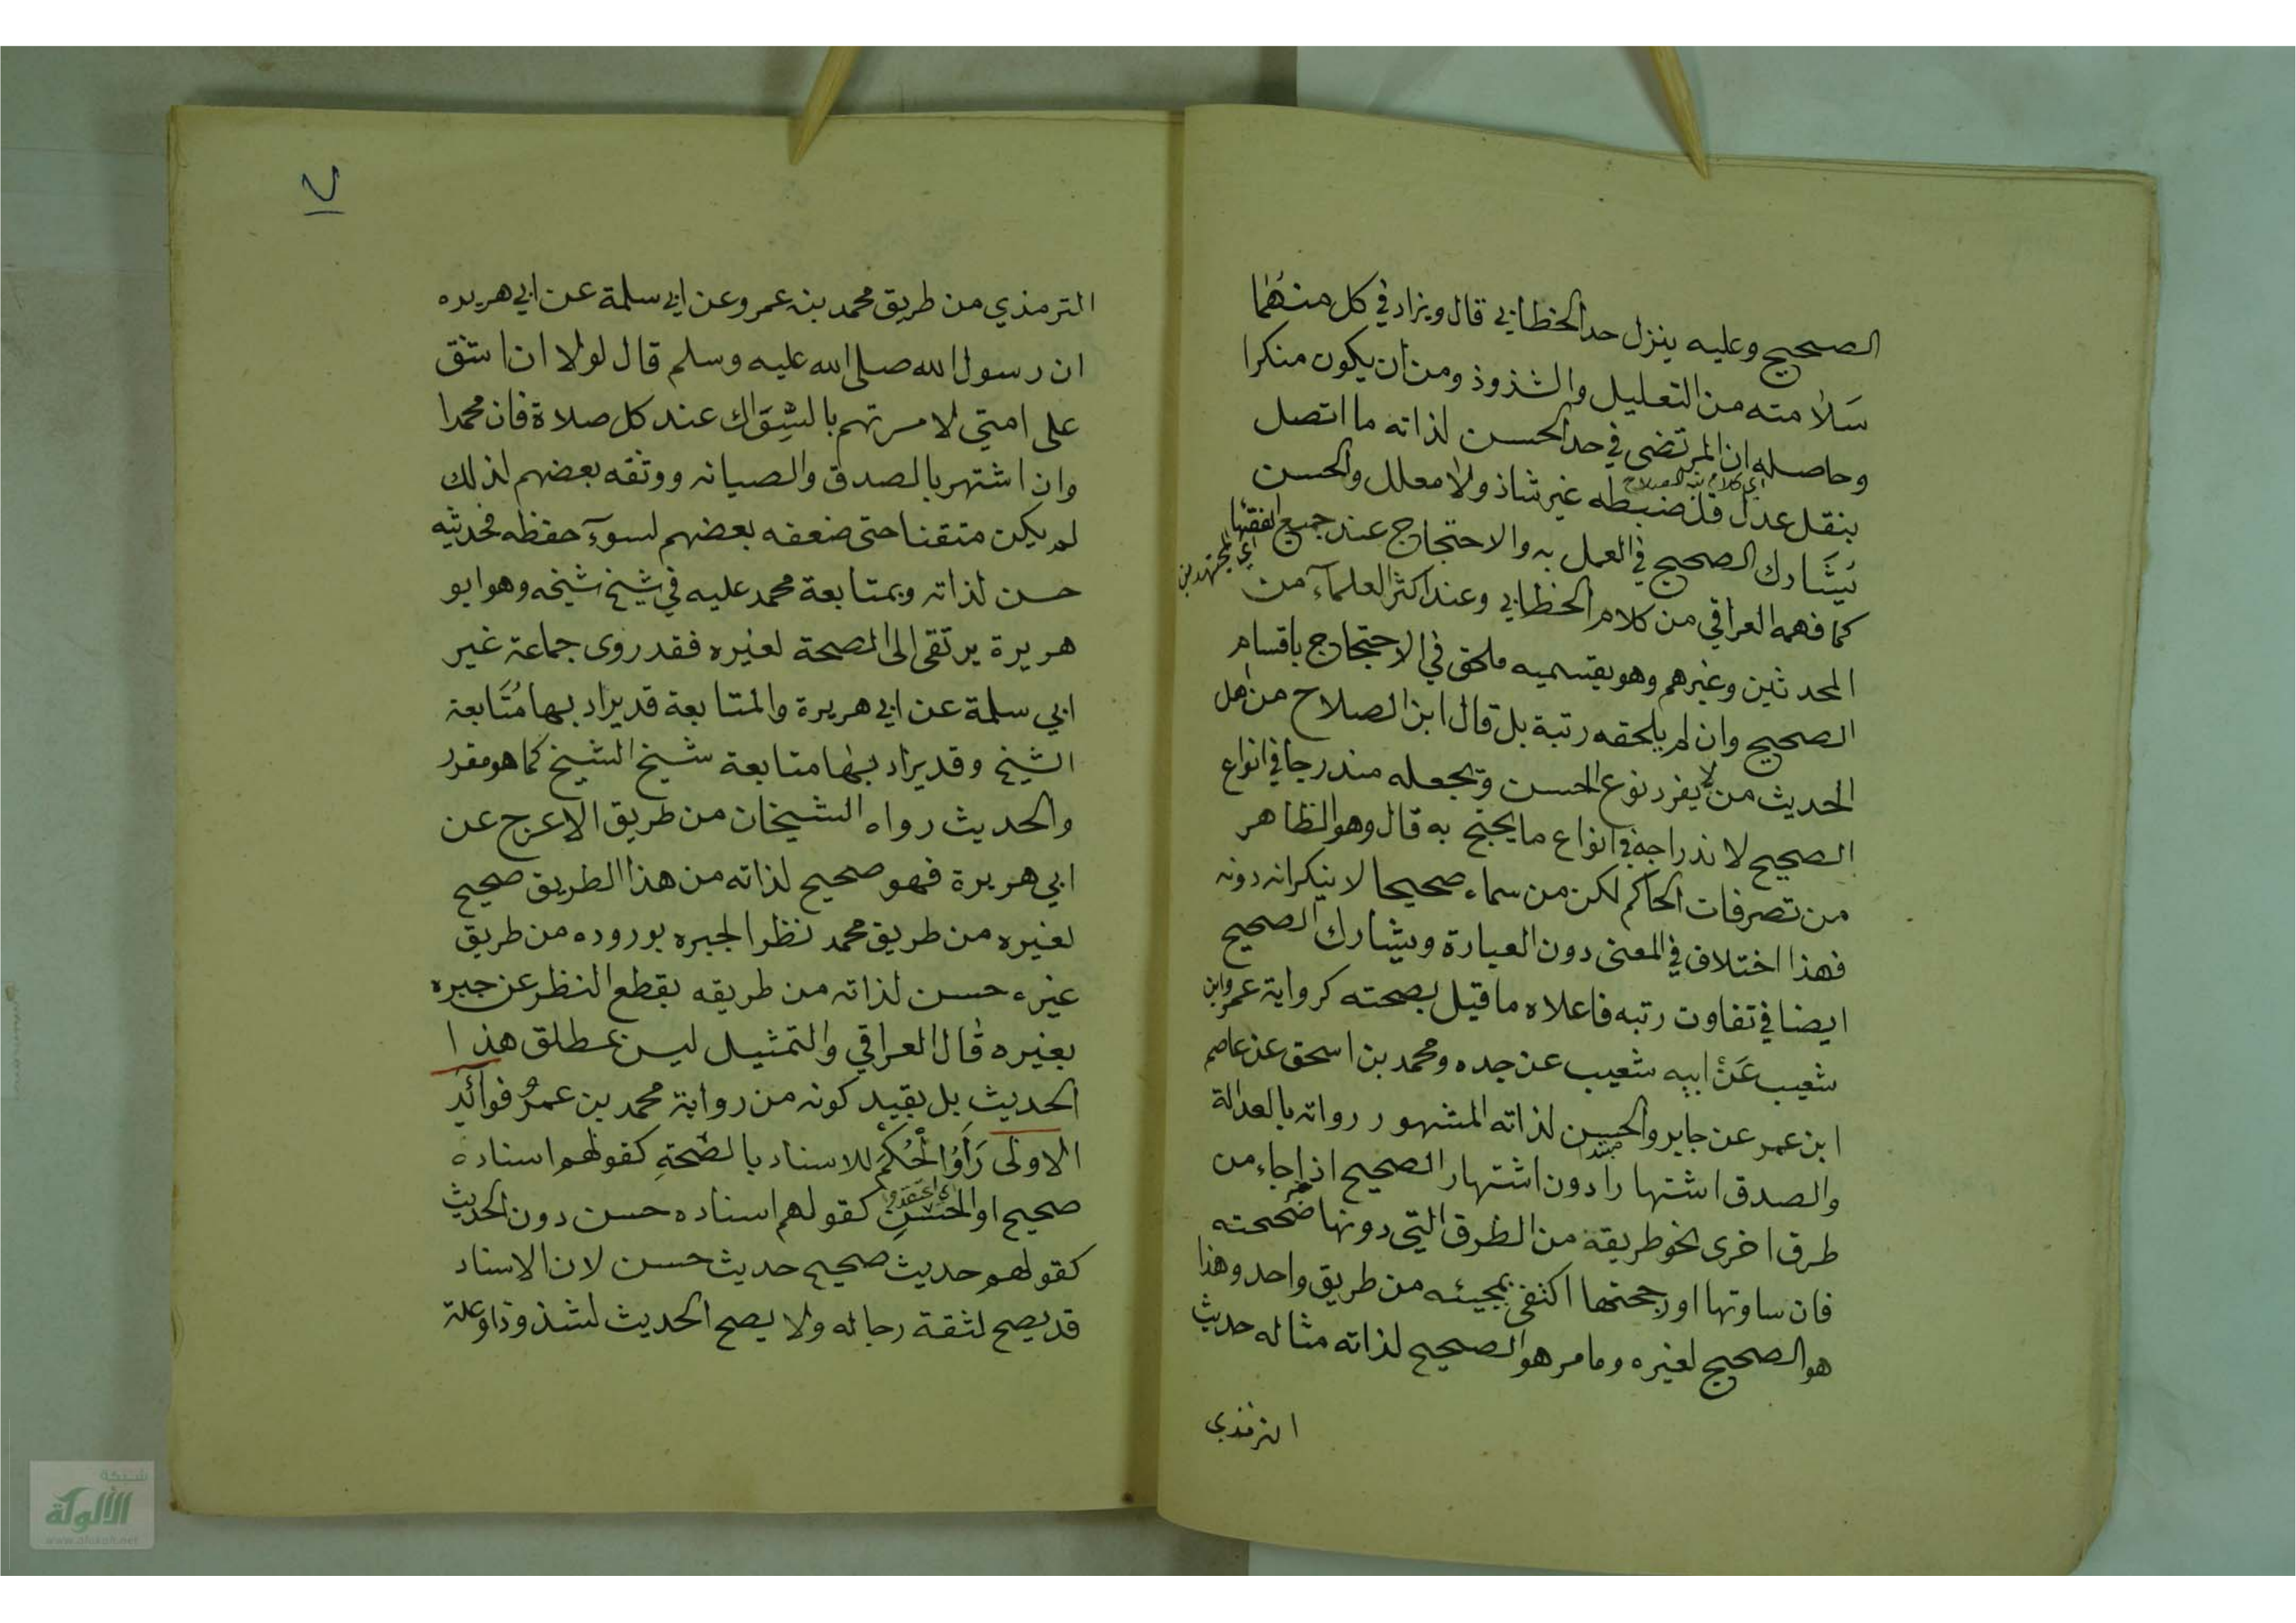 الصحيح وعليه ينزل حد الخطابي قال ويزاد في كل منهما
سلامته من التعليل والشذوذ ومن ان يكون منكرا
وحاصله ان المرتضى في حد الحسن لذاته ما اتصل
اي كلام ابن الصلاح
بنقل عدل قل ضبطه غير شاذ ولا معلل والحسن
يشارك الصحيح في العمل به والاحتجاج عند جميع الفقها
اي المجتهدين
كما فهمه العراقي من كلام الخطابي وعند اكثر العلمآء من
المحدثين وغيرهم وهو بقسميه ملحق في الاحتجاج باقسام
الصحيح وان لم يلحقه رتبة بل قال ابن الصلاح من اهل
الحديث من لا يفرد نوع الحسن ويجعله مندرجا في انواع
الصحيح لاندراجه في انواع ما يحتج به قال وهو الظاهر
من تصرفات الحاكم لكن من سماه صحيحا لا ينكر انه دونه
فهذا اختلاف في المعنى دون العبارة ويشارك الصحيح
ايضا في تفاوت رتبه فاعلاه ما قيل بصحته كرواية عمرو ابن
شعيب عَنْ ابيه شعيب عن جده ومحمد بن اسحق عن عاصم
ابن عمر عن جابر والحسن لذاته المشهور رواته بالعدالة
مبتدا
والصدق اشتهارا دون اشتهار الصحيح اذا جاء من
طرق اخرى نحو طريقه من الطرق التي دونها صححته
خبر
فان ساوتها او رجحتها اكتفى بمجيئه من طريق واحد وهذا
هو الصحيح لغيره وما مر هو الصحيح لذاته مثاله حديث
الترمذي
٧
الترمذي من طريق محمد بن عمرو عن ابي سلمة عن ابي هريره
ان رسول الله صلى الله عليه وسلم قال لولا ان اشق
على امتي لامرتهم بالسِّوَاك عند كل صلاة فان محمدا
وان اشتهر بالصدق والصيانه ووثقه بعضهم لذلك
لم يكن متقنا حتى ضعفه بعضهم لسوء حفظه فحديثه
حسن لذاته وبمتابعة محمد عليه في شيخ شيخه وهو ابو
هريرة يرتقى الى الصحة لغيره فقد روى جماعة غير
ابي سلمة عن ابي هريرة والمتابعة قد يراد بها مُتَابعة
الشيخ وقد يراد بها متابعة شيخ الشيخ كما هو مقرر
والحديث رواه الشيخان من طريق الاعرج عن
ابي هريرة فهو صحيح لذاته من هذا الطريق صحيح
لغيره من طريق محمد نظرا لجبره بوروده من طريق
غيره حسن لذاته من طريقه بقطع النظر عن جبره
بغيره قال العراقي والتمثيل ليس بمطلق هذا
الحديث بل بقيد كونه من رواية محمد بن عمرو فوائد
الاولى رَأَوُا الْحُكْمَ للاسناد بالصّحَّةِ كقولهم اسناده
اي اعتقدوا
صحيح او الحسن كقولهم اسناده حسن دون الحديث
كقولهم حديث صحيح حديث حسن لان الاسناد
قد يصح لثقة رجاله ولا يصح الحديث لشذوذ او علة
شبكة
الألوكة
www.alukah.net